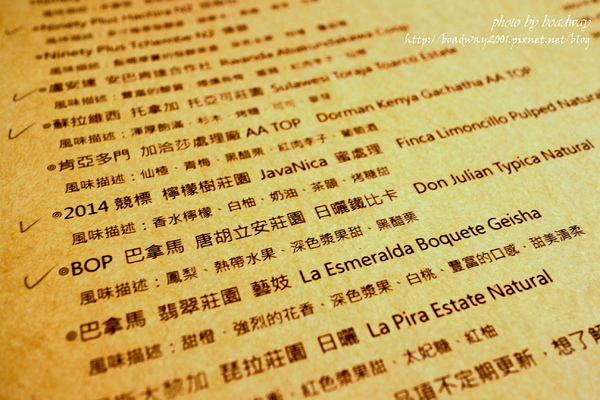 photo by boadway
http://boadway2001.pixnet.net/blog
Ninety Plus
Ninety Plus
盧安達 安巴肯達合作社
風味描述：
蘇拉維西 托拿加 托亞可莊園 Sulawesi Toraja Toarco Estate
風味描述：渾厚飽滿、杉木、烤糖、可可、
肯亞多門 加洽莎處理廠 AA TOP Dorman Kenya Gachatha AA TOP
風味描述：仙楂、青梅、黑醋栗、紅肉李子、葡萄酒
2014 競標 檸檬樹莊園 JavaNica 蜜處理 Finca Limoncillo Pulped Natural
風味描述：香水檸檬、白柚、奶油、茶韻、烤糖甜
BOP 巴拿馬 唐胡立安莊園 日曬鐵比卡 Don Julian Typica Natural
風味描述：鳳梨、熱帶水果、深色漿果甜、黑醋栗
巴拿馬 翡翠莊園 藝妓 La Esmeralda Boquete Geisha
風味描述：甜橙、強烈的花香、深色漿果、白桃、豐富的口感、甜美清柔
哥斯大黎加 琵拉莊園 日曬 La Pira Estate Natural
紅色漿果甜、太妃糖、紅柚
品項不定期更新，想了解